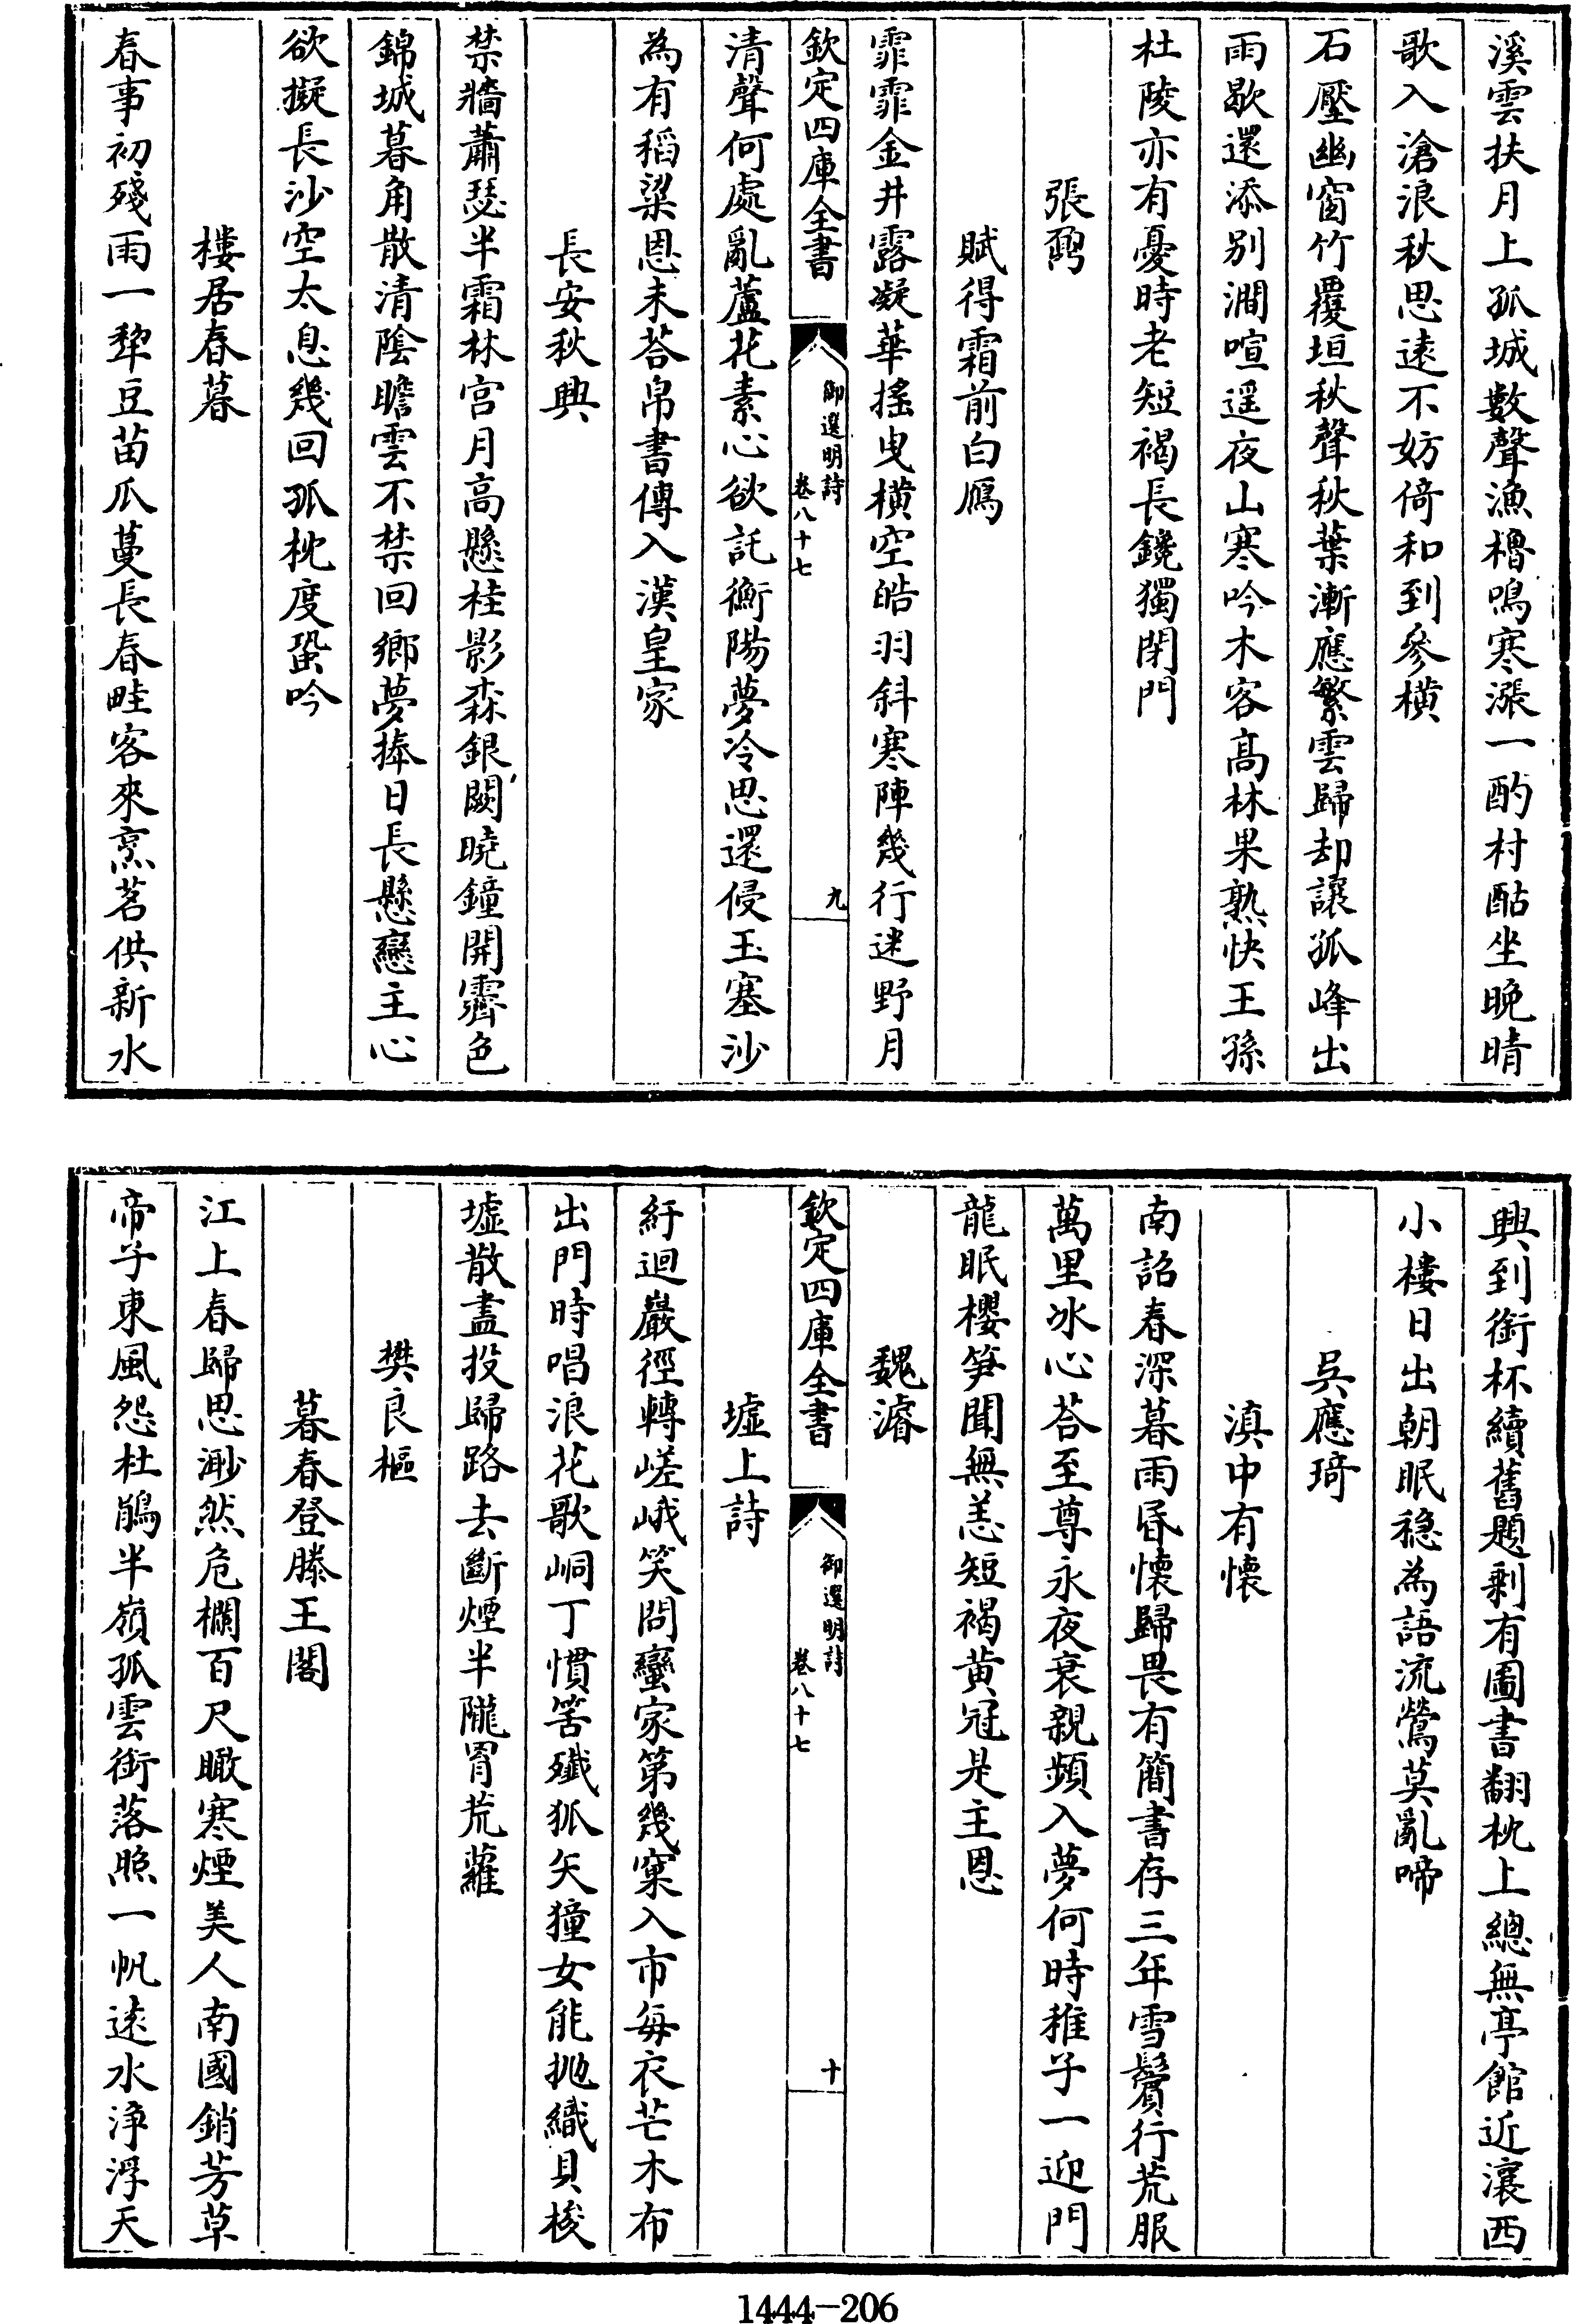 溪雲扶月上孤城數聲漁櫓鳴寒漲一酌村酤坐晚晴
歌入滄浪秋思遠不妨倚和到參橫
石壓幽窗竹覆垣秋聲秋葉漸應繁雲歸却讓孤峰出
雨歇還添别澗喧遥夜山寒吟木客高林果熟快王孫
杜陵亦有憂時老短褐長鑱獨閉門
張鼐
賦得霜前白鴈
霏霏金井露凝華搖曳橫空皓羽斜寒陣幾行迷野月
欽定四庫全書
御選明詩
卷八十七
九
清聲何處亂蘆花素心欲託衡陽夢冷思還侵玉塞沙
為有稻粱恩未荅帛書傳入漢皇家
長安秋興
禁牆蕭瑟半霜林宫月高懸桂影森銀闕曉鐘開霽色
錦城暮角散清陰瞻雲不禁回鄉夢捧日長懸戀主心
欲擬長沙空太息幾回孤枕度蛩吟
樓居春暮
春事初殘雨一犂豆苗瓜蔓長春畦客來烹茗供新水
興到銜杯續舊題剩有圖書翻枕上總無亭館近瀼西
小樓日出朝眠穏為語流鶯莫亂啼
吳應琦
滇中有懷
南詔春深暮雨昏懷歸畏有簡書存三年雪鬢行荒服
萬里冰心荅至尊永夜衰親頻入夢何時稚子一迎門
龍眠櫻笋聞無恙短褐黄冠是主恩
魏濬
欽定四庫全書
御選明詩
卷八十七
十
墟上詩
紆迴巖徑轉嵯峨笑問蠻家第幾窠入市每衣芒木布
出門時唱浪花歌峒丁慣筈殲狐矢獞女能抛織貝梭
墟散盡投歸路去斷煙半隴罥荒蘿
樊良樞
暮春登滕王閣
江上春歸思渺然危欄百尺瞰寒煙美人南國銷芳草
帝子東風怨杜鵑半嶺孤雲銜落照一帆遠水浄浮天
1444—206